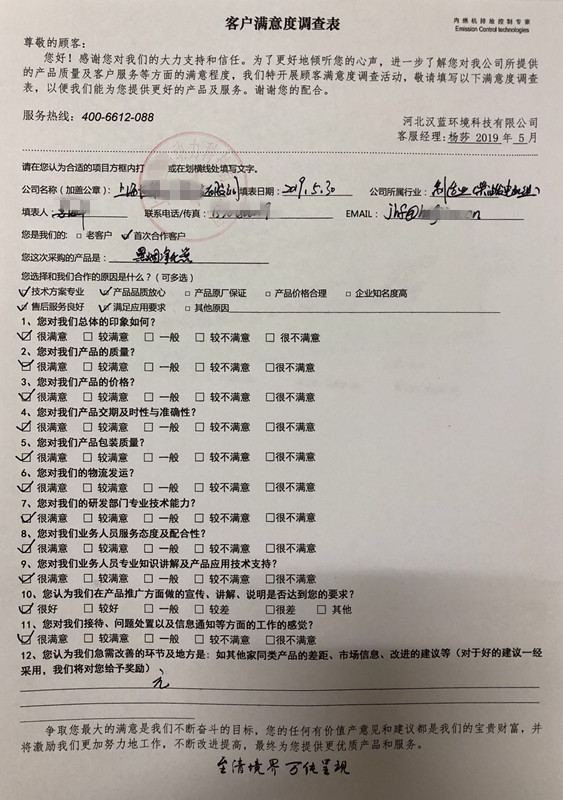 客户满意度调查表
内燃机排放控制专家
Emission Control technologies
尊敬的顾客：
您好！感谢您对我们的大力支持和信任。为了更好地倾听您的心声，进一步了解您对我公司所提
供的产品质量及客户服务等方面的满意程度，我们特开展顾客满意度调查活动，敬请填写以下满意度调查
表，以便我们能为您提供更好的产品及服务。谢谢您的配合。
服务热线：400-6612-088
河北汉蓝环境科技有限公司
客服经理：杨莎 2019 年 5 月
请在您认为合适的项目方框内打 或在划横线处填写文字。
公司名称（加盖公章）：上海 填表日期：2019.5.30 公司所属行业：
填表人： 联系电话/传真： EMAIL：
您是我们的：□ 老客户 ☑ 首次合作客户
您这次采购的产品是：黑烟净化器
您选择和我们合作的原因是什么？（可多选）
☑ 技术方案专业 ☑ 产品品质放心 □ 产品原厂保证 □ 产品价格合理 □ 企业知名度高
☑ 售后服务良好 ☑ 满足应用要求 □ 其他原因
1、您对我们总体的印象如何？
☑ 很满意 □ 较满意 □ 一般 □ 较不满意 □ 很不满意
2、您对我们产品的质量？
☑ 很满意 □ 较满意 □ 一般 □ 较不满意 □很不满意
3、您对我们产品的价格？
☑ 很满意 □ 较满意 □ 一般 □ 较不满意 □很不满意
4、您对我们产品交期及时性与准确性？
☑ 很满意 □ 较满意 □ 一般 □ 较不满意 □很不满意
5、您对我们产品包装质量？
☑ 很满意 □ 较满意 □ 一般 □ 较不满意 □很不满意
6、您对我们的物流发运？
☑ 很满意 □ 较满意 □ 一般 □ 较不满意 □很不满意
7、您对我们的研发部门专业技术能力？
☑ 很满意 □ 较满意 □ 一般 □ 较不满意 □很不满意
8、您对我们业务人员服务态度及配合性？
☑ 很满意 □ 较满意 □ 一般 □ 较不满意 □很不满意
9、您对我们业务人员专业知识讲解及产品应用技术支持？
☑ 很满意 □ 较满意 □ 一般 □ 较不满意 □很不满意
10、您认为我们在产品推广方面做的宣传、讲解、说明是否达到您的要求？
☑ 很好 □ 较好 □ 一般 □ 较差 □很差 □ 其他
11、您对我们接待、问题处置以及信息通知等方面的工作的感觉？
☑ 很满意 □ 较满意 □ 一般 □ 较不满意 □很不满意
12、您认为我们急需改善的环节及地方是：如其他家同类产品的差距、市场信息、改进的建议等（对于好的建议一经
采用，我们将对您给予奖励）
元
争取您最大的满意是我们不断奋斗的目标，您的任何有价值产意见和建议都是我们的宝贵财富，并
将激励我们更加努力地工作，不断改进提高，最终为您提供更优质产品和服务。
全清境界 万纯呈现